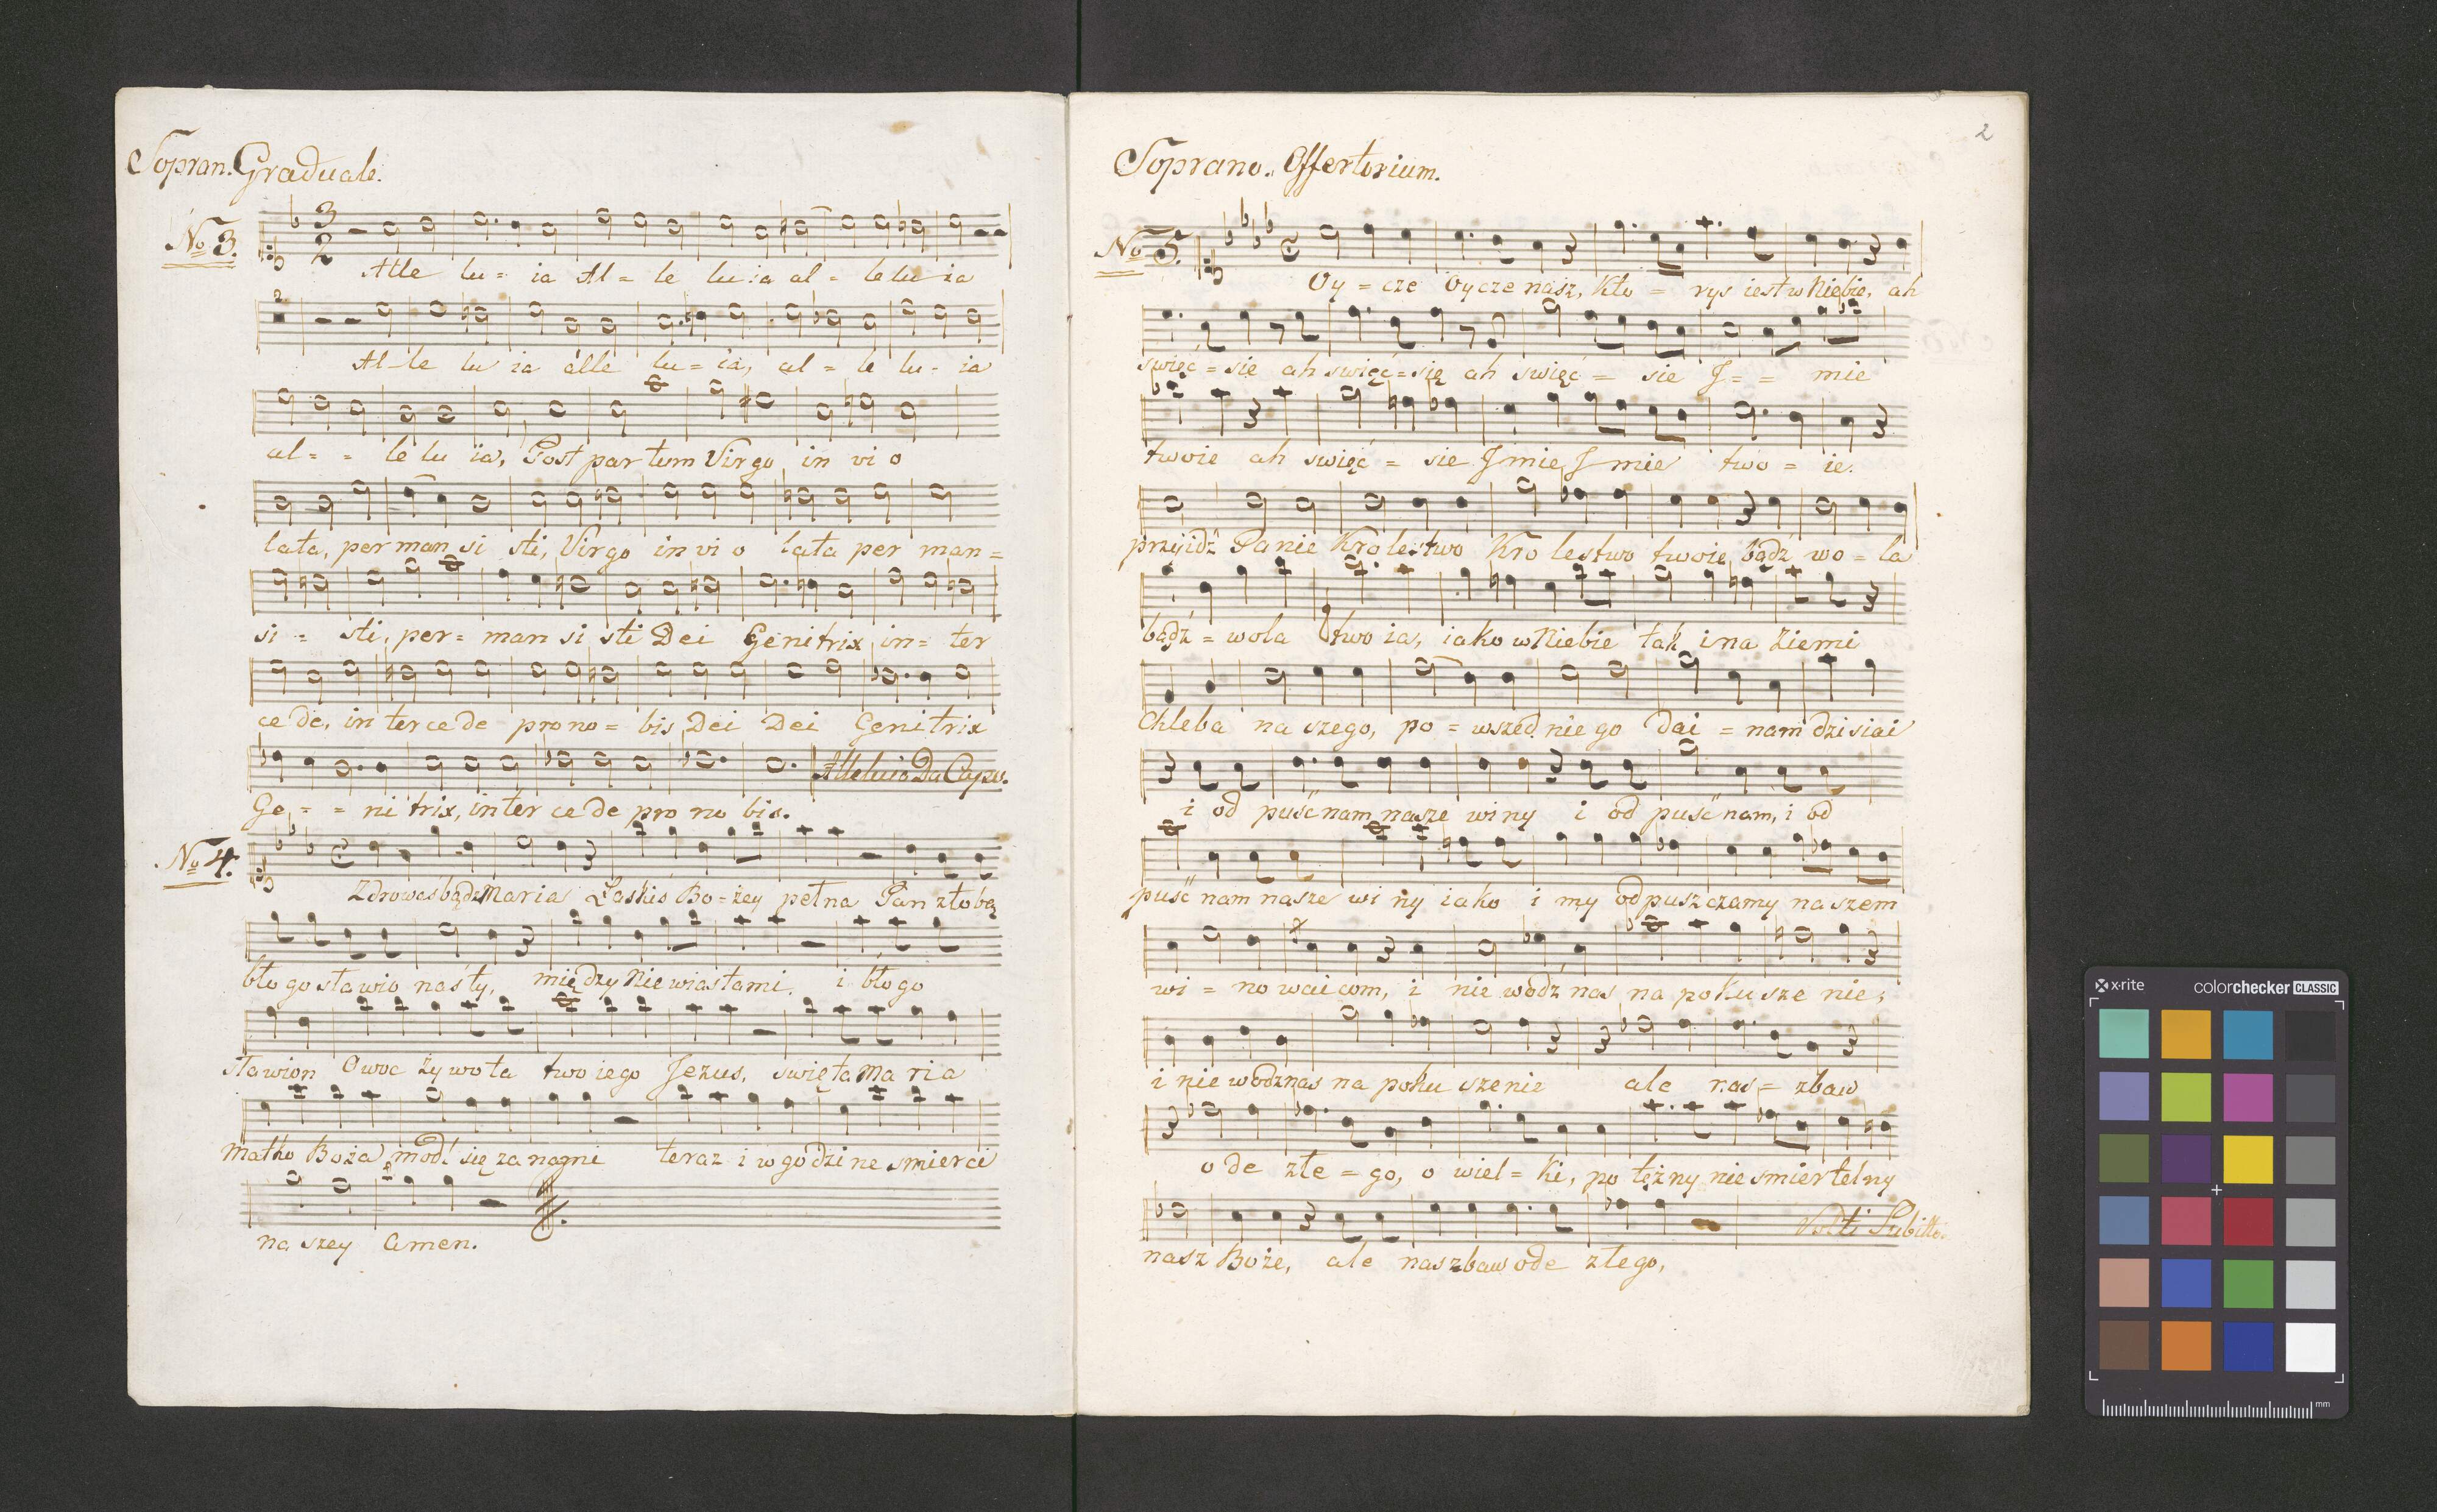 Sopran. Graduale.
No 3.
3
2
Alle lu = ia Al = le lu ia al = le lu ia
2
Al - le lu ia alle lu = ia, al = le lu - ia
al = = le lu ia, Post partum Virgo in vi o
lata, per man si sti, Virgo in vi o lata per man =
si = sti, per = man si sti Dei Genitrix in = ter
ce de, in ter ce de pro no = bis Dei Dei Genitrix
Alleluia Da Capo.
Ge = = ni trix, in ter ce de pro no bis.
No 4.
Zdrowas bądz Maria Łaskis Bo = żey pełna Pan ztobą
błogosławio nasty, między Niewiastami, i błogo
sławion Owoc żywota twoiego Jezus, swięta Maria
Matko Boża modl się za nami teraz i w godzine smierci
naszey Amen.
2
Soprano. Offertorium.
No 5.
Oy = cze Oycze nasz, Kto = rys iest w Niebie, ah
swięć = sie ah swięć = się ah swięć = sie J = = mie
twoie ah swięć = sie Jmie Jmie two = ie.
przyidź Panie Krolestwo Krolestwo twoie bądź wo = la
bądź = wola twoia, iako w Niebie tak i na Ziemi
Chleba naszego, po = wszedniego dai = nam dzisiai
i od puść nam nasze winy i od puść nam, i od
puść nam nasze winy iako i my odpuszczamy naszem
wi = nowaicom, i nie wodź nas na pokuszenie;
i nie wodz nas na pokuszenie ale nas = zbaw
ode złe = go, o wiel = ki, potężny niesmiertelny
Volti Subito.
nasz Boże, ale nas zbaw ode złego,
x-rite
colorchecker CLASSIC
mm